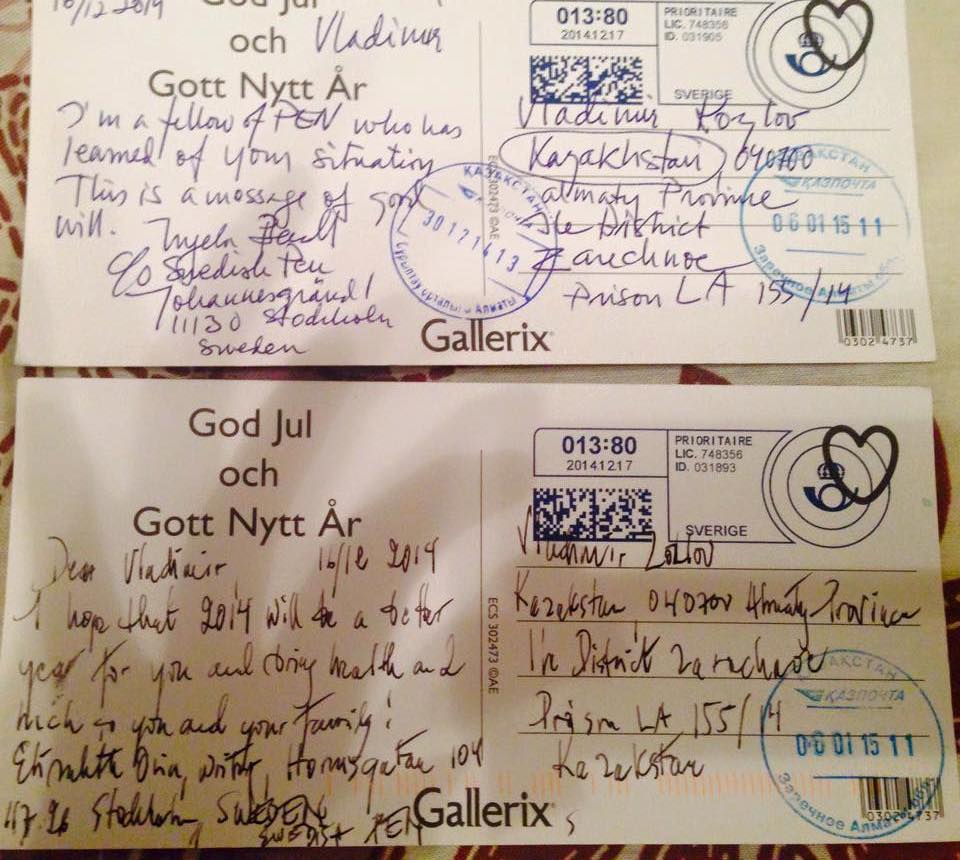 16/12 2014
God Jul
och Vladimir
Gott Nytt År
I'm a fellow of PEN who has
learned of your situation
This is a message of good
will.
c/o Swedish Pen
Johannesgränd 1
11130 Stockholm
Sweden
013:80
2014.12.17
PRIORITAIRE
LIC. 748356
ID. 031905
SVERIGE
Vladimir Kozlov
Kazakhstan, 040700
Almaty Province
Ile District
Zarechnoe
Prison LA 155/14
ECS 302473 ©AE
ҚАЗАҚСТАН
30 12 14 13
Сұрыптау орталығы Алматы
ҚАЗАҚСТАН
ҚАЗПОЧТА
06 01 15 11
Заречное Алматы обл.
Gallerix
0302 4737
God Jul
och
Gott Nytt År
Dear Vladimir, 16/12 2014
I hope that 2014 will be a better
year for you and bring health and
to you and your family!
Hornsgatan 104
117 26 Stockholm SWEDEN
SWEDISH PEN
013:80
2014.12.17
PRIORITAIRE
LIC. 748356
ID. 031893
SVERIGE
Vladimir Kozlov
Kazakstan 040700 Almaty Province
Ile District Zarechnoe
Prison LA 155/14
Kazakstan
ECS 302473 ©AE
ҚАЗАҚСТАН
ҚАЗПОЧТА
06 01 15 11
Заречное Алматы обл.
Gallerix
0302 4737